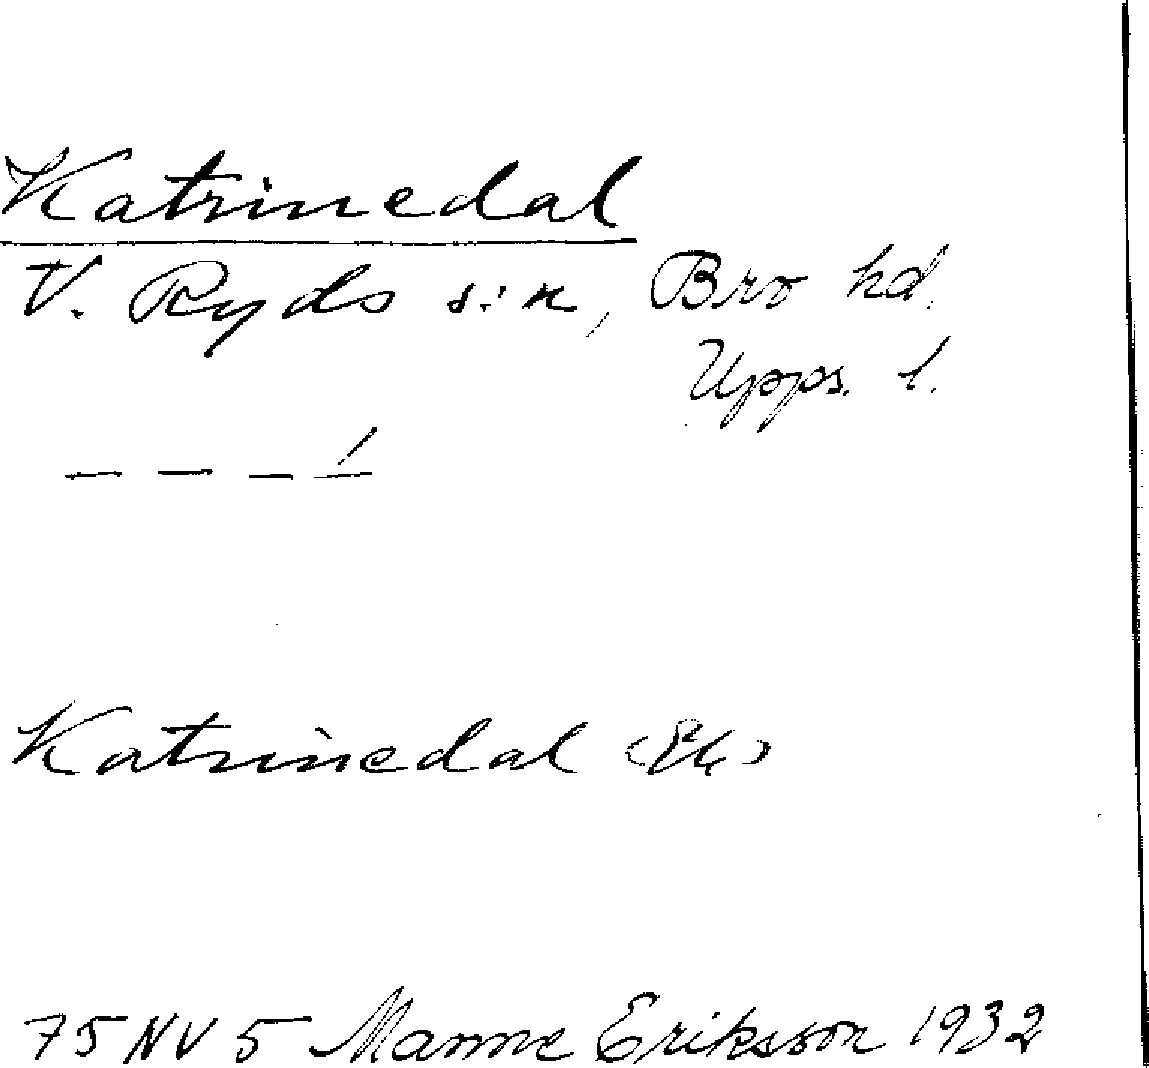 Katrinedal
V. Ryds s:n, Bro hd.
Upps. l.
— — — —́
Katrinedal (Ek)
75 NV 5 Manne Eriksson 1932